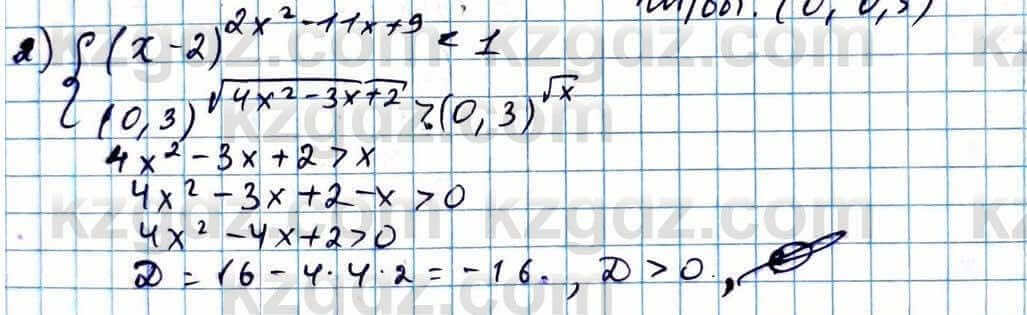 2) { (x-2)^{2x²-11x+9} < 1
(0,3)^{√(4x²-3x+2)} ≥ (0,3)^{√x}
4x²-3x+2>x
4x²-3x+2-x>0
4x²-4x+2>0
D=16-4·4·2=-16., D>0.,
kzgdz.com